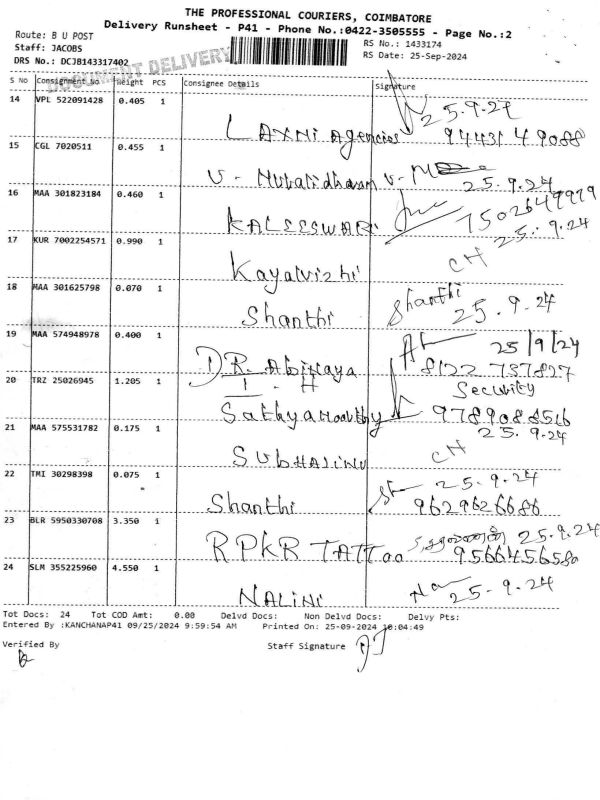 THE PROFESSIONAL COURIERS, COIMBATORE
Delivery Runsheet - P41 - Phone No.:0422-3505555 - Page No.:2
Route: B U POST
RS No.: 1433174
Staff: JACOBS
RS Date: 25-Sep-2024
DRS No.: DCJB143317402
DOCUMENT DELIVERY
S No Consignment No Weight PCS Consignee Details Signature
14 VPL 522091428 0.405 1 25.9.24
Laxmi Agencies 9443149088
15 CGL 7020511 0.455 1
V - Muralidharan 25.9.24
16 MAA 301823184 0.460 1
KALEESWARI 7502649979
25.9.24
17 KUR 7002254571 0.990 1
Kayalvizhi CH
18 MAA 301625798 0.070 1
Shanthi Shanthi 25.9.24
19 MAA 574948978 0.400 1 25/9/24
DR. Abinaya 8122 737827
I - H
20 TRZ 25026945 1.205 1 Security
Sathyamoorthy 9789088516
21 MAA 575531782 0.175 1 25.9.24
SUBHASINI CH
22 TMI 30298398 0.075 1 25.9.24
Shanthi 9629626686
23 BLR 5950330708 3.350 1 25.9.24
RPKR TATToo 9566456580
24 SLM 355225960 4.550 1
NALINI Na 25.9.24
Tot Docs: 24 Tot COD Amt: 0.00 Delvd Docs: Non Delvd Docs: Delvy Pts:
Entered By :KANCHANAP41 09/25/2024 9:59:54 AM Printed On: 25-09-2024 10:04:49
Verified By Staff Signature